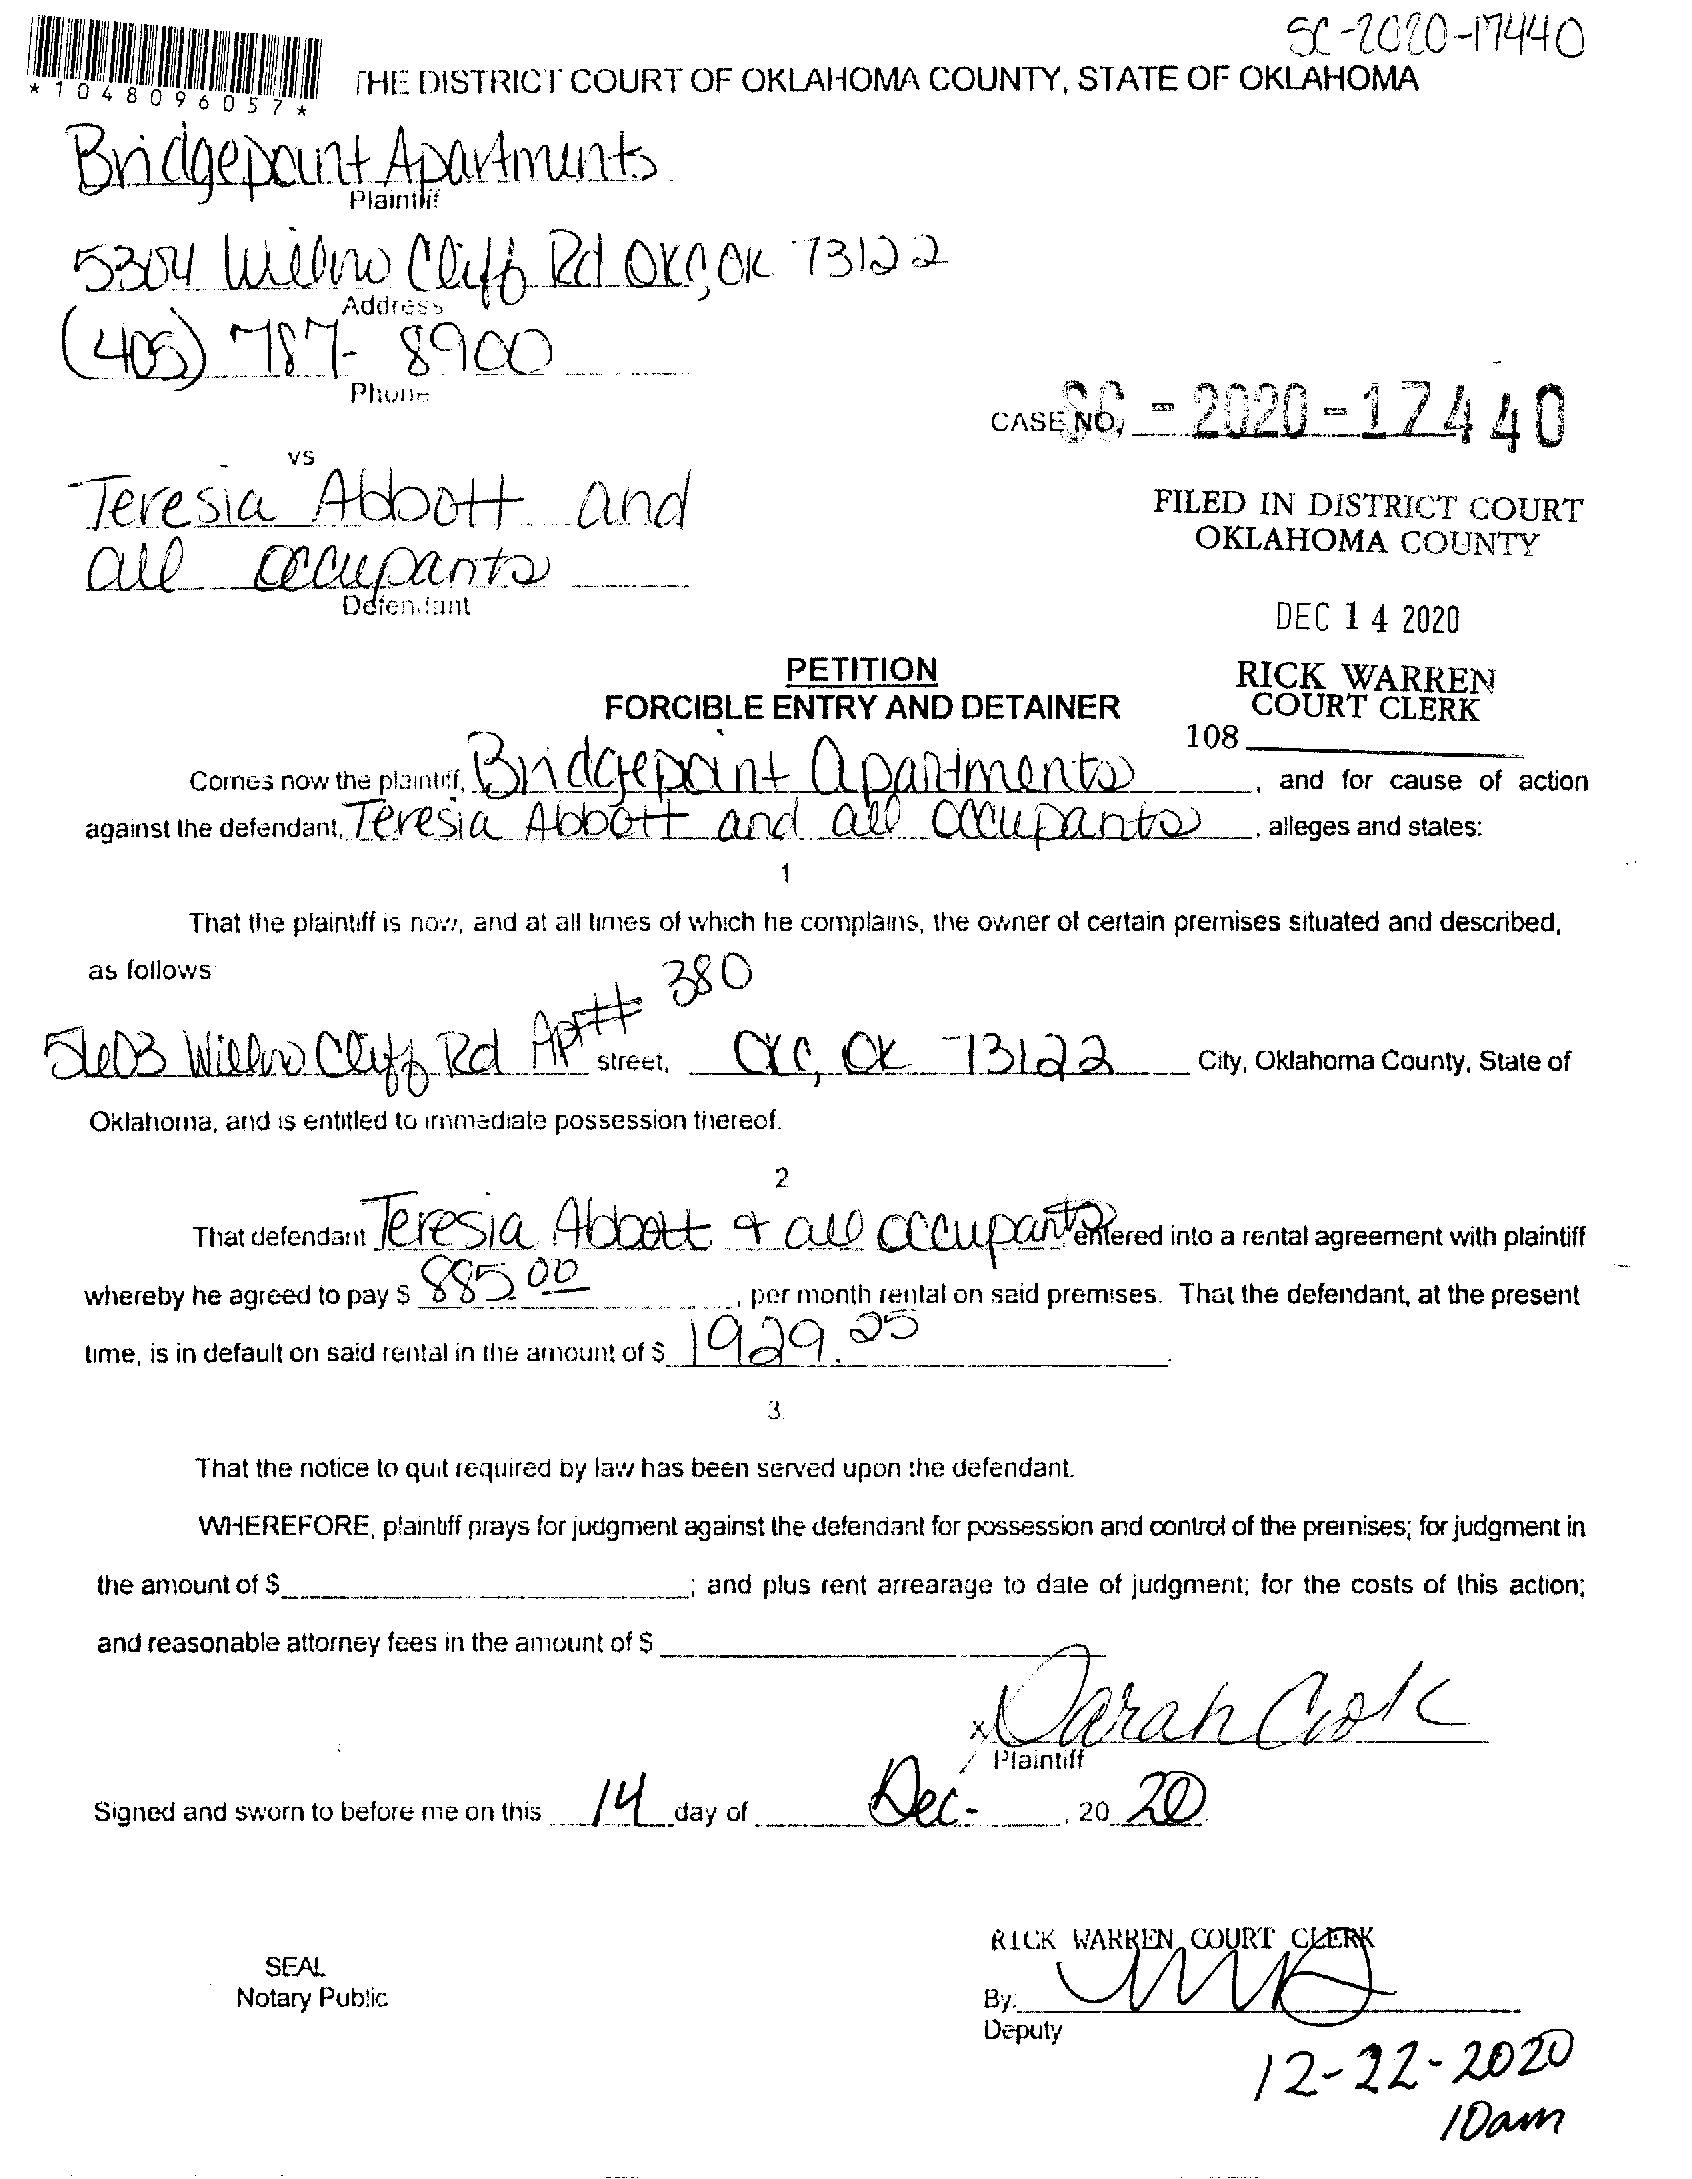 SC-2020-17440
*1048096057*
THE DISTRICT COURT OF OKLAHOMA COUNTY, STATE OF OKLAHOMA
Bridgepoint Apartments
Plaintiff
5304 Willow Cliff Rd OKC, OK 73122
Address
(405) 787-8900
Phone
CASE NO. SC-2020-17440
vs
Teresia Abbott and
all occupants
Defendant
FILED IN DISTRICT COURT
OKLAHOMA COUNTY
DEC 14 2020
RICK WARREN
COURT CLERK
108
PETITION
FORCIBLE ENTRY AND DETAINER
Comes now the plaintiff, Bridgepoint Apartments, and for cause of action
against the defendant, Teresia Abbott and all occupants, alleges and states:
1
That the plaintiff is now, and at all times of which he complains, the owner of certain premises situated and described,
as follows
5603 Willow Cliff Rd Apt# 380 street, OKC, OK 73122 City, Oklahoma County, State of
Oklahoma, and is entitled to immediate possession thereof.
2
That defendant Teresia Abbott & all occupants entered into a rental agreement with plaintiff
whereby he agreed to pay $ 885.00, per month rental on said premises. That the defendant, at the present
time, is in default on said rental in the amount of $ 1929.25.
3.
That the notice to quit required by law has been served upon the defendant.
WHEREFORE, plaintiff prays for judgment against the defendant for possession and control of the premises; for judgment in
the amount of $ ; and plus rent arrearage to date of judgment; for the costs of this action;
and reasonable attorney fees in the amount of $
x Sarah Cook
Plaintiff
Signed and sworn to before me on this 14 day of Dec-, 20 20.
RICK WARREN, COURT CLERK
SEAL
Notary Public
By:
Deputy
12-22-2020
10am